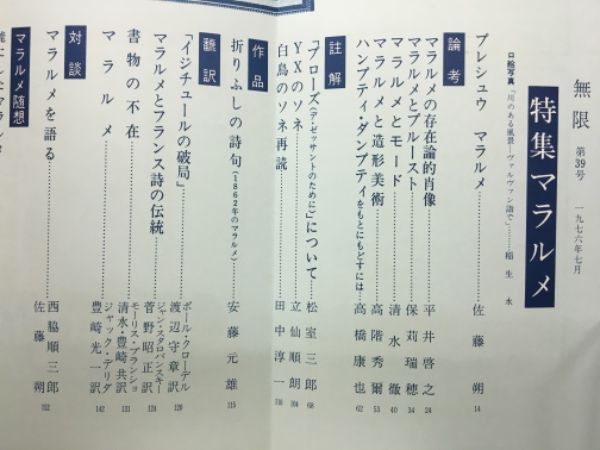 無限 第39号 一九七六年七月
特集マラルメ
口絵写真「川のある風景―ヴァルヴァン詣で」……稲生永
プレシュウ マラルメ……佐藤朔 14
論考
マラルメの存在論的肖像……平井啓之 24
マラルメとプルースト……保苅瑞穂 34
マラルメとモード……清水徹 40
マラルメと造形美術……高階秀爾 53
ハンプティ・ダンプティをもとにもどすには……高橋康也 62
註解
「プローズ(デ・ゼッサントのために)」について……松室三郎 68
YXのソネ……立仙順朗 104
白鳥のソネ再読……田中淳一
作品
折りふしの詩句(1862年のマラルメ)……安藤元雄 115
翻訳
「イジチュールの破局」……ポール・クローデル 渡辺守章訳 120
マラルメとフランス詩の伝統……ジャン・スタロバンスキー 菅野昭正訳 124
書物の不在……モーリス・ブランショ 清水・豊崎共訳 131
マラルメ……ジャック・デリダ 豊崎光一訳 142
対談
マラルメを語る……西脇順三郎 佐藤朔 152
マラルメ随想